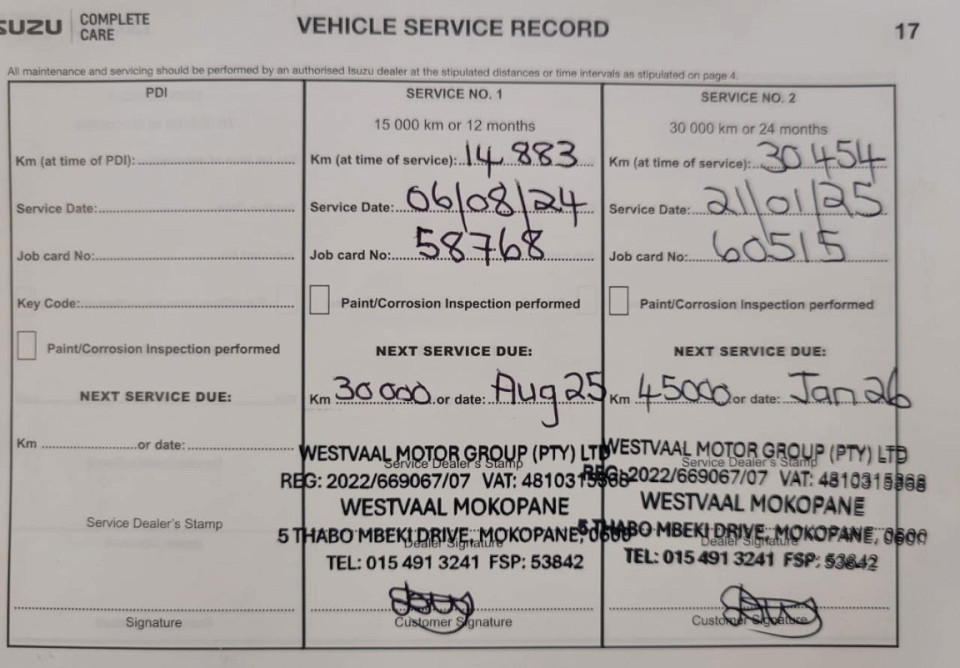 SUZU COMPLETE CARE
VEHICLE SERVICE RECORD
17
All maintenance and servicing should be performed by an authorised Isuzu dealer at the stipulated distances or time intervals as stipulated on page 4.
PDI
Km (at time of PDI):
Service Date:
Job card No:
Key Code:
Paint/Corrosion Inspection performed
NEXT SERVICE DUE:
Km or date:
Service Dealer's Stamp
Signature
SERVICE NO. 1
15 000 km or 12 months
Km (at time of service): 14 883
Service Date: 06/08/24
Job card No: 58768
Paint/Corrosion Inspection performed
NEXT SERVICE DUE:
Km 30 000 or date: Aug 25
WESTVAAL MOTOR GROUP (PTY) LTD
Service Dealer's Stamp
REG: 2022/669067/07 VAT: 4810315868
WESTVAAL MOKOPANE
5 THABO MBEKI DRIVE, MOKOPANE, 0600
Dealer Signature
TEL: 015 491 3241 FSP: 53842
Customer Signature
SERVICE NO. 2
30 000 km or 24 months
Km (at time of service): 30 454
Service Date: 21/01/25
Job card No: 60515
Paint/Corrosion Inspection performed
NEXT SERVICE DUE:
Km 45000 or date: Jan 26
WESTVAAL MOTOR GROUP (PTY) LTD
Service Dealer's Stamp
REG: 2022/669067/07 VAT: 4810315868
WESTVAAL MOKOPANE
5 THABO MBEKI DRIVE, MOKOPANE, 0600
Dealer Signature
TEL: 015 491 3241 FSP: 53842
Customer Signature